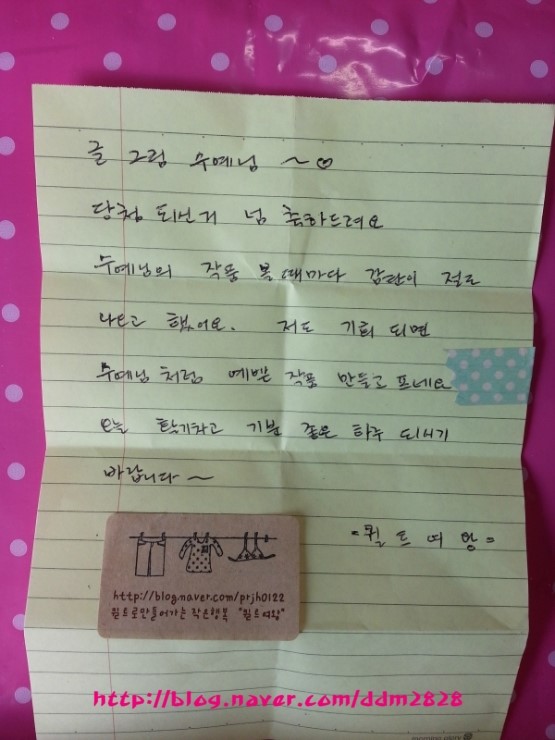 글 그림 수예님 ~♡
당첨 되신거 넘 축하드려요
수예님의 작품 볼때마다 감탄이 절로
나오고 했어요. 저도 기회 되면
수예님 처럼 예쁜 작품 만들고 프네요
오늘 활기차고 기분 좋은 하루 되시기
바랍니다~
*퀼트여왕*
http://blog.naver.com/prjh0122
퀼트로만들어가는 작은행복 "퀼트여왕"
http://blog.naver.com/ddm2828